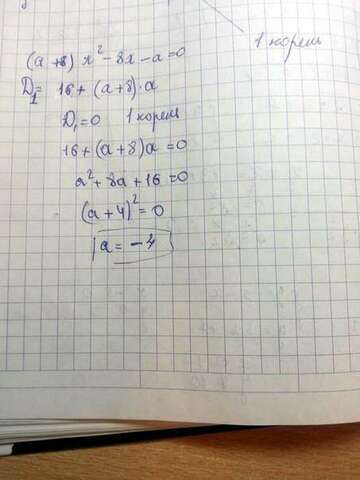 1 корень
(a+8)x²-8x-a=0
D₁= 16+(a+8)·a
D₁=0 1 корень
16+(a+8)a=0
a²+8a+16=0
(a+4)²=0
a=-4